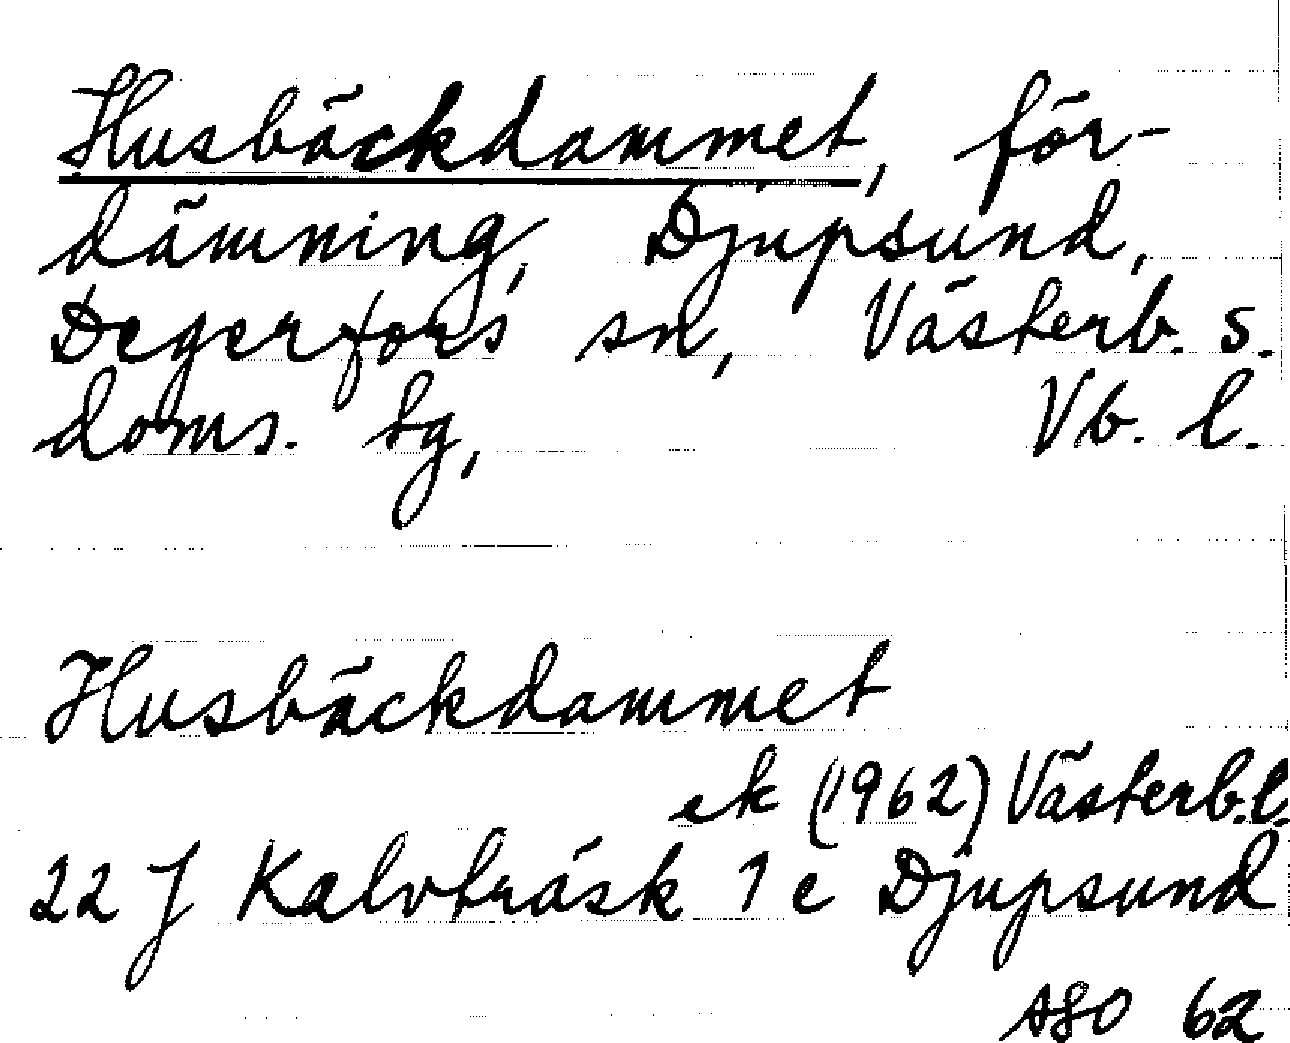 Husbäckdammet, för-
dämning, Djupsund,
Degerfors sn, Västerb. s.
doms. sg, Vb. l.
Husbäckdammet
ek (1962) Västerb.l.
22 J Kalvträsk 1 e Djupsund
62